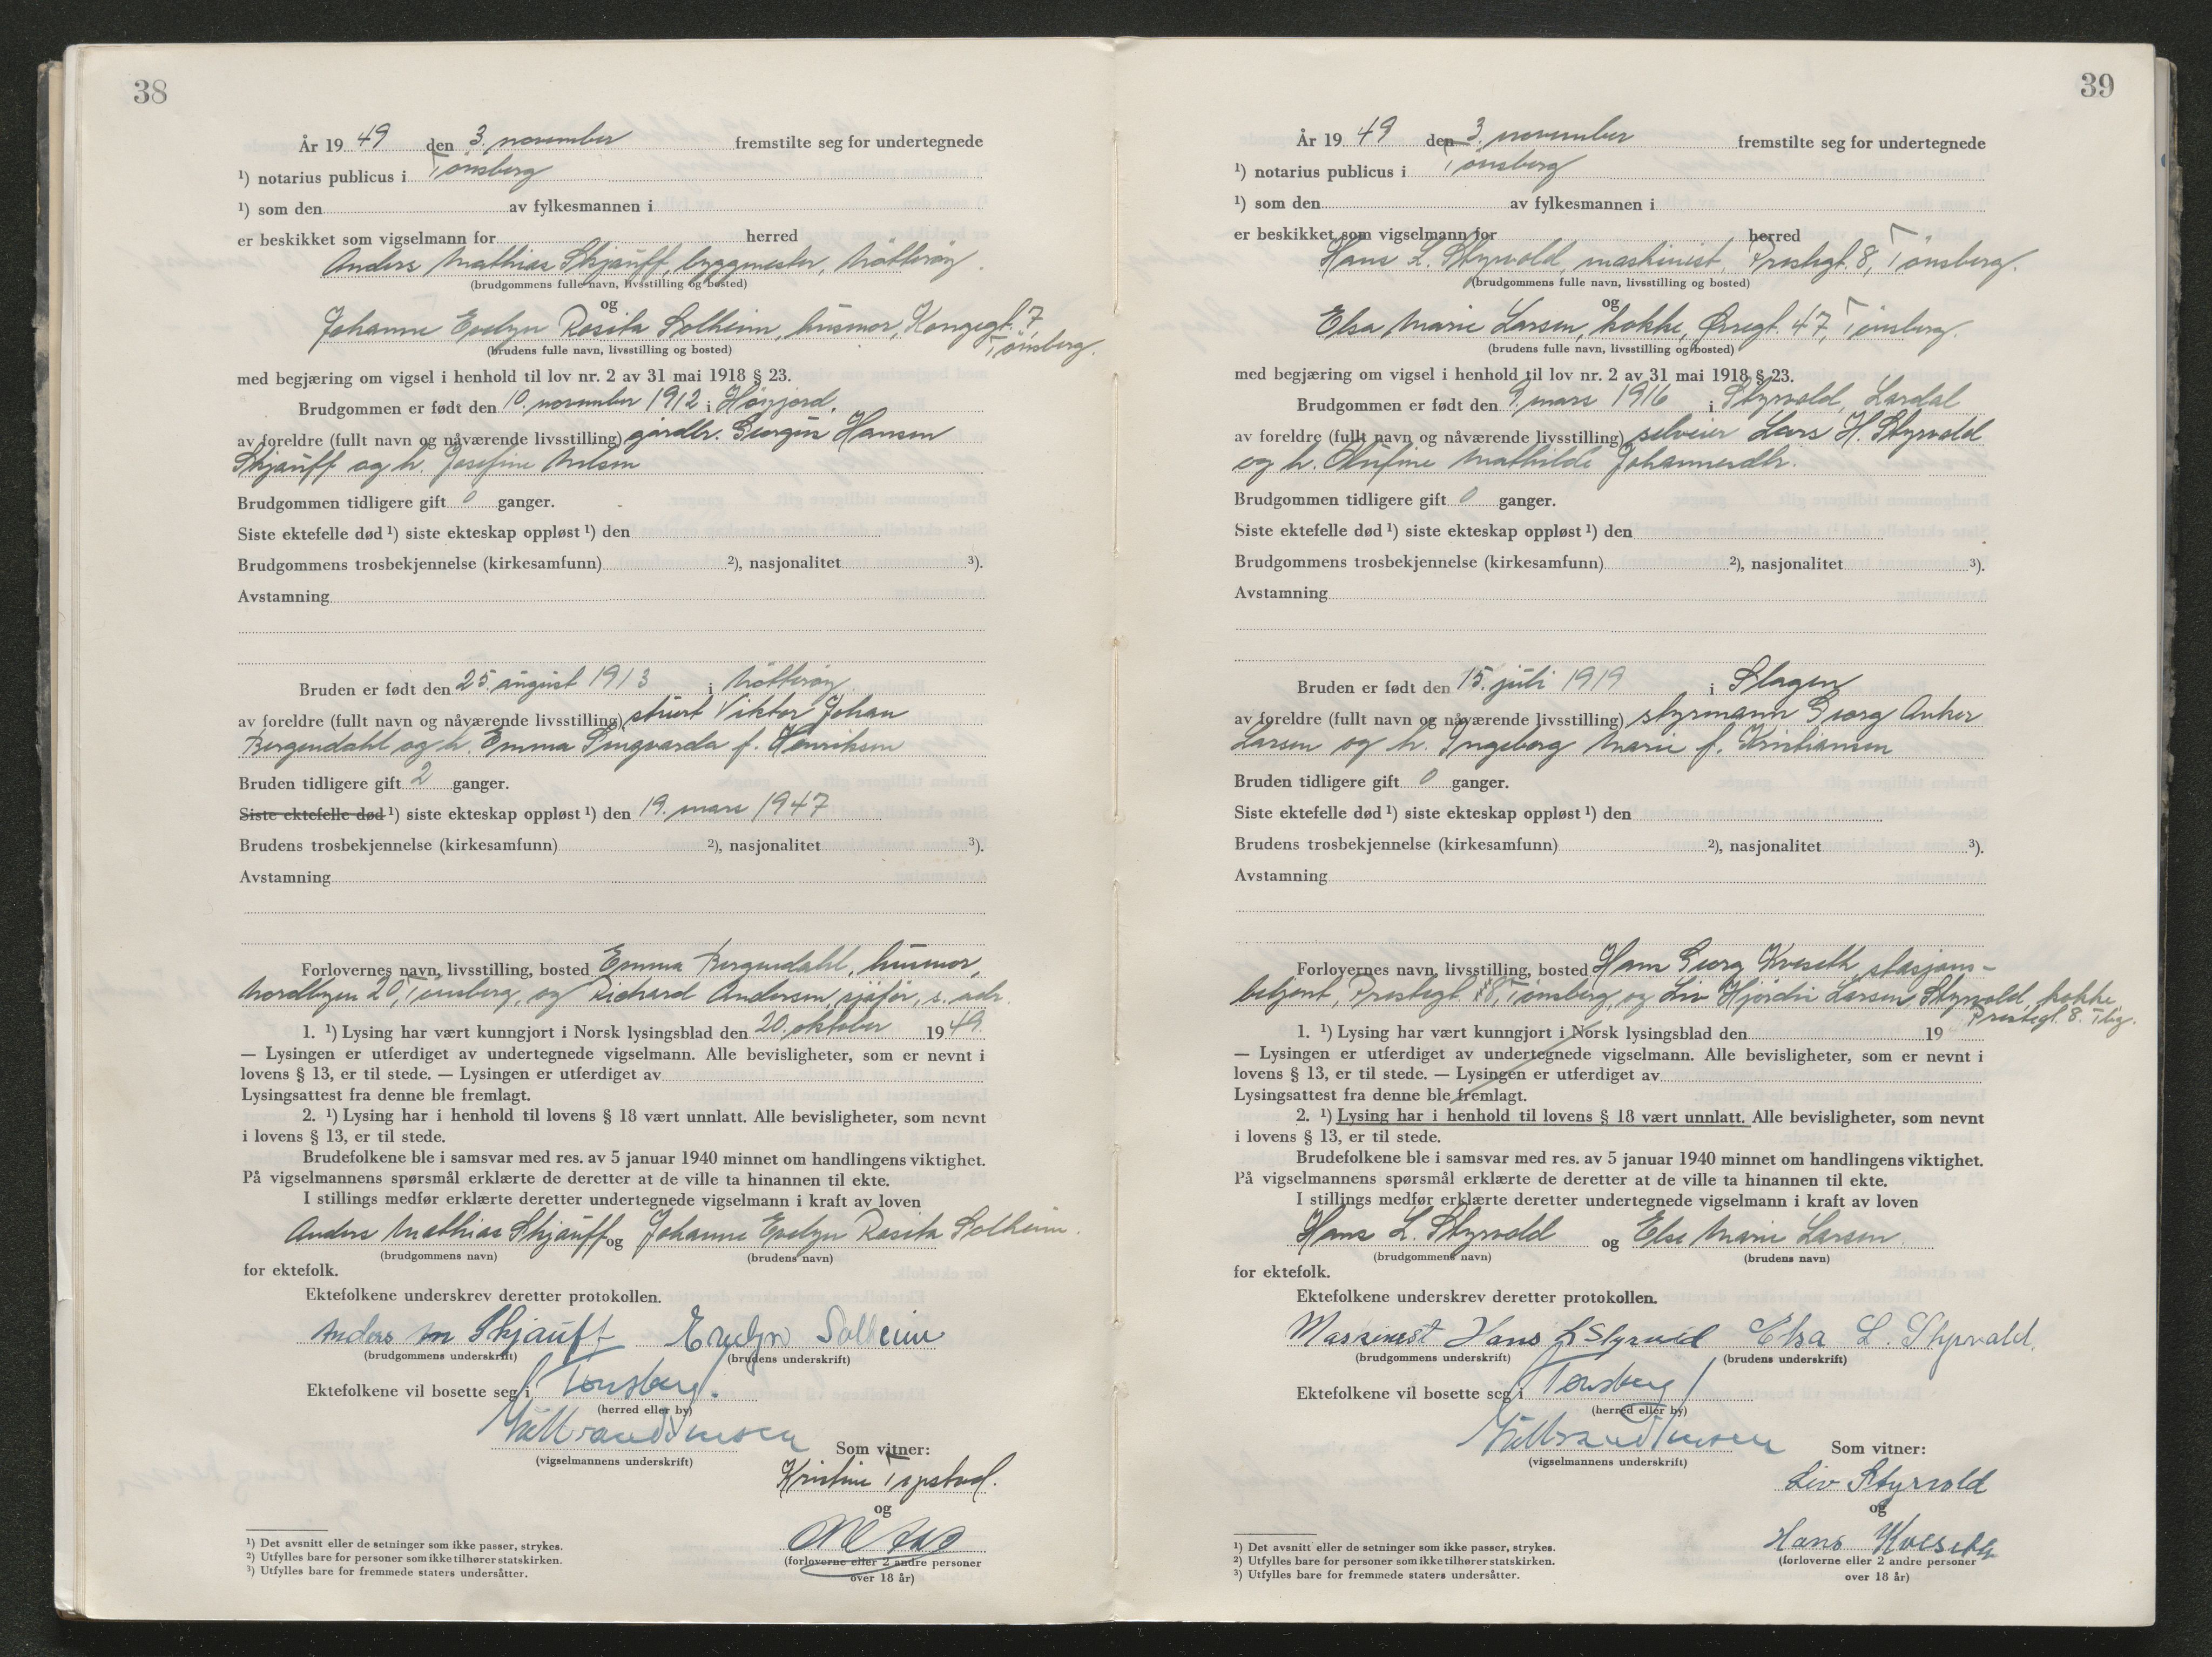 38
År 19 49 den 3. november fremstilte seg for undertegnede
¹) notarius publicus i Tønsberg
¹) som den av fylkesmannen i
er beskikket som vigselmann for herred
Anders Mathias Skjauff, byggmester, Nøtterøy.
(brudgommens fulle navn, livsstilling og bosted)
og
Johanne Evelyn Rosita Solheim, husmor, Kongegt. 7,
Tønsberg.
(brudens fulle navn, livsstilling og bosted)
med begjæring om vigsel i henhold til lov nr. 2 av 31 mai 1918 § 23.
Brudgommen er født den 10. november 1912 i
av foreldre (fullt navn og nåværende livsstilling) gardbr. Georgius Hansen
Skjauff og h. Josefine Nilsen
Brudgommen tidligere gift 0 ganger.
Siste ektefelle død ¹) siste ekteskap oppløst ¹) den
Brudgommens trosbekjennelse (kirkesamfunn) ²), nasjonalitet ³).
Avstamning
Bruden er født den 25. august 1913 i Nøtterøy
av foreldre (fullt navn og nåværende livsstilling) stuert Viktor Johan
Bergendahl og h. Emma Lingvarda f. Henriksen
Bruden tidligere gift 2 ganger.
Siste ektefelle død ¹) siste ekteskap oppløst ¹) den 19. mars 1947
Brudens trosbekjennelse (kirkesamfunn) ²), nasjonalitet ³).
Avstamning
Forlovernes navn, livsstilling, bosted Emma Bergendahl, husmor,
Nordbyen 20, Tønsberg, og Richard Andersen, sjåfør, s. adr.
1. ¹) Lysing har vært kunngjort i Norsk lysingsblad den 20. oktober 1949.
— Lysingen er utferdiget av undertegnede vigselmann. Alle bevisligheter, som er nevnt i
lovens § 13, er til stede. — Lysingen er utferdiget av
Lysingsattest fra denne ble fremlagt.
2. ¹) Lysing har i henhold til lovens § 18 vært unnlatt. Alle bevisligheter, som nevnt
i lovens § 13, er til stede.
Brudefolkene ble i samsvar med res. av 5 januar 1940 minnet om handlingens viktighet.
På vigselmannens spørsmål erklærte de deretter at de ville ta hinannen til ekte.
I stillings medfør erklærte deretter undertegnede vigselmann i kraft av loven
Anders Mathias Skjauff og Johanne Evelyn Rosita Solheim.
(brudgommens navn) (brudens navn)
for ektefolk.
Ektefolkene underskrev deretter protokollen.
Anders M Skjauff Evelyn Solheim
(brudgommens underskrift) (brudens underskrift)
Ektefolkene vil bosette seg i Tønsberg.
(herred eller by)
(vigselmannens underskrift)
Som vitner:
Kristine
og
(forloverne eller 2 andre personer
over 18 år)
¹) Det avsnitt eller de setninger som ikke passer, strykes.
²) Utfylles bare for personer som ikke tilhører statskirken.
³) Utfylles bare for fremmede staters undersåtter.
39
År 19 49 den 3. november fremstilte seg for undertegnede
¹) notarius publicus i Tønsberg
¹) som den av fylkesmannen i
er beskikket som vigselmann for herred
Hans L. Styrvold, maskinist, Prestegt. 8, Tønsberg.
(brudgommens fulle navn, livsstilling og bosted)
og
Elsa Marie Larsen, kokke, Øvregt. 47, Tønsberg.
(brudens fulle navn, livsstilling og bosted)
med begjæring om vigsel i henhold til lov nr. 2 av 31 mai 1918 § 23.
Brudgommen er født den 9. mars 1916 i Styrvold, Lardal
av foreldre (fullt navn og nåværende livsstilling) selveier Lars H. Styrvold
og h. Olufine Mathilde Johannesdtr.
Brudgommen tidligere gift 0 ganger.
Siste ektefelle død ¹) siste ekteskap oppløst ¹) den
Brudgommens trosbekjennelse (kirkesamfunn) ²), nasjonalitet ³).
Avstamning
Bruden er født den 15. juli 1919 i Slagen
av foreldre (fullt navn og nåværende livsstilling) styrmann Georg Anker
Larsen og h. Ingeborg Marie f. Kristiansen
Bruden tidligere gift 0 ganger.
Siste ektefelle død ¹) siste ekteskap oppløst ¹) den
Brudens trosbekjennelse (kirkesamfunn) ²), nasjonalitet ³).
Avstamning
Forlovernes navn, livsstilling, bosted Hans Georg Kveseth, stasjons-
betjent, Prestegt. 18, Tønsberg, og Liv Hjørdis Larsen Styrvold, kokke,
Prestegt. 8. Tbg.
1. ¹) Lysing har vært kunngjort i Norsk lysingsblad den 19
— Lysingen er utferdiget av undertegnede vigselmann. Alle bevisligheter, som er nevnt i
lovens § 13, er til stede. — Lysingen er utferdiget av
Lysingsattest fra denne ble fremlagt.
2. ¹) Lysing har i henhold til lovens § 18 vært unnlatt. Alle bevisligheter, som nevnt
i lovens § 13, er til stede.
Brudefolkene ble i samsvar med res. av 5 januar 1940 minnet om handlingens viktighet.
På vigselmannens spørsmål erklærte de deretter at de ville ta hinannen til ekte.
I stillings medfør erklærte deretter undertegnede vigselmann i kraft av loven
Hans L. Styrvold og Else Marie Larsen
(brudgommens navn) (brudens navn)
for ektefolk.
Ektefolkene underskrev deretter protokollen.
Maskinest Hans L Styrvold Elsa L. Styrvold.
(brudgommens underskrift) (brudens underskrift)
Ektefolkene vil bosette seg i Tønsberg
(herred eller by)
(vigselmannens underskrift)
Som vitner:
Liv Styrvold
og
Hans Kveseth
(forloverne eller 2 andre personer
over 18 år)
¹) Det avsnitt eller de setninger som ikke passer, strykes.
²) Utfylles bare for personer som ikke tilhører statskirken.
³) Utfylles bare for fremmede staters undersåtter.